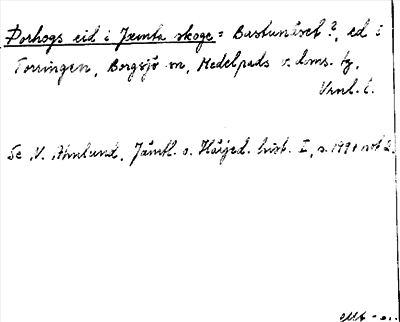 Þorhogs eid i Jæmta skoge = Bastunäset?, ed i
Torringen, Borgsjö sn, Medelpads v. dms. tg,
Vrnl. l.
Se N. Ahnlund, Jämtl. o. Härjed. hist. I, s. 199, not 2.